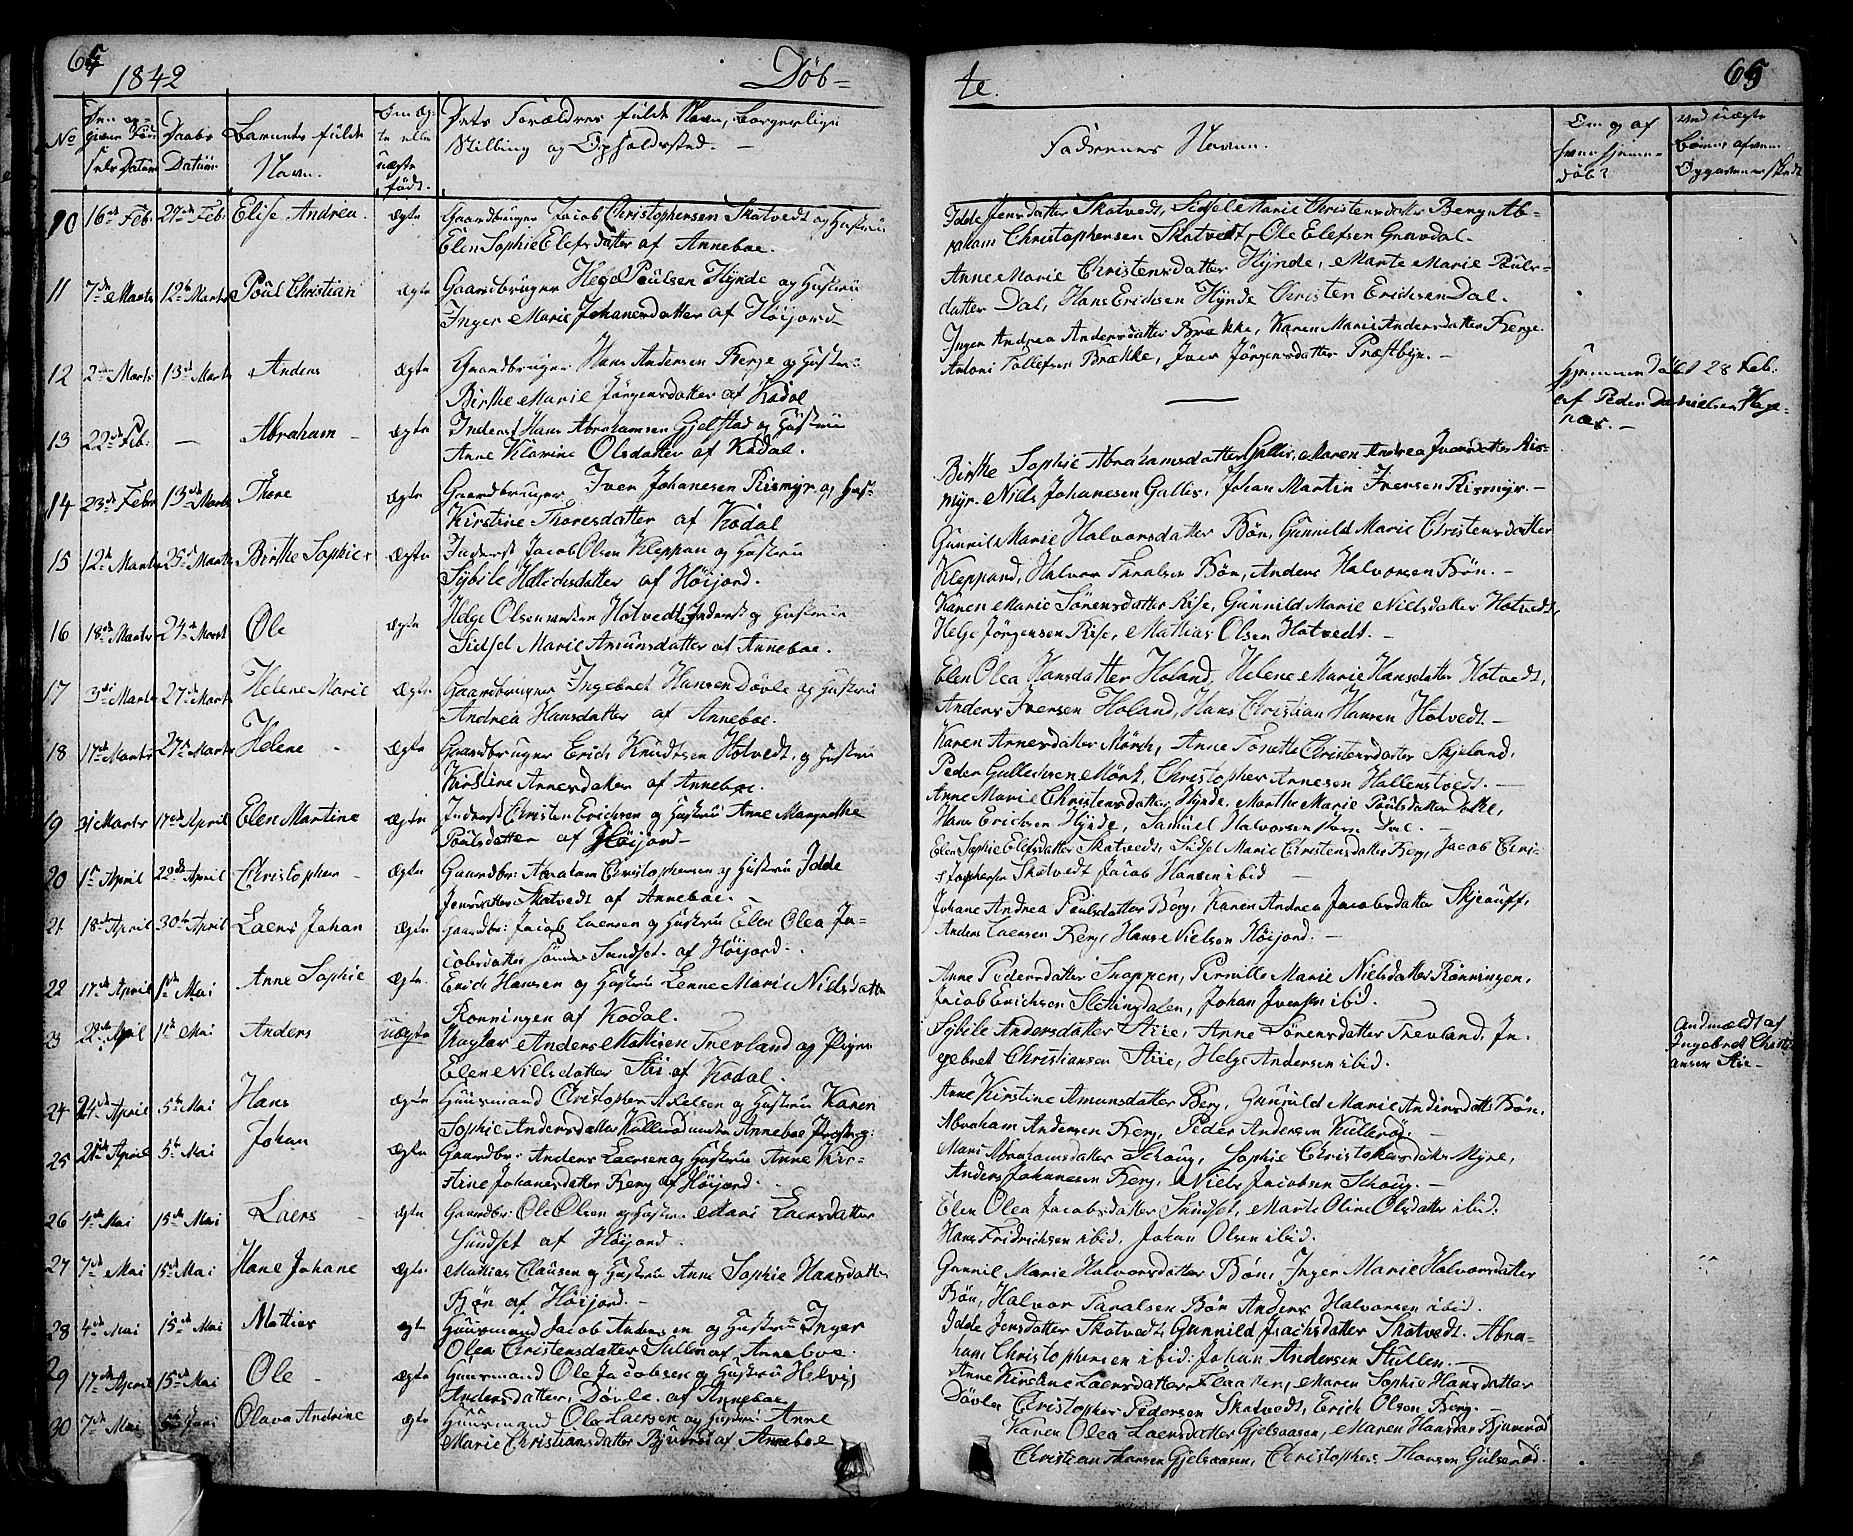 64
1842
Döb-
No
Daabs Barnets fulde
Datum
Navn.
Dets Forældres fulde Navn, Borgerlige
Stilling og Opholdssted. —
10 16de Feb. 27de Feb Elise Andrea. Ægte Gaardbruger Jacob Christophersen Skatvedt og Hustrue
Elen Sophie Elefsdatter af Anneboe.
11 7de Marts 12te Marts Poul Christian Ægte Gaardbruger Helge Poulsen Hynde og Hustrue
Inger Marie Johanesdatter af Höijord
12 Marts 13de Marts Anders Ægte Gaardbruger Hans Andersen Berge og Hustrue
Birthe Marie Jörgensdatter af Kodal
13 22de Feb. — Abraham Ægte Inderst Hans Abrahamsen Gjelstad og Hustrue
Anne Klarine Olsdatter af Kodal.
14 23de Febr 13de Marts Thore Ægte Gaardbruger Iver Johanesen Rismyr og Hus-
Kirstine Thoresdatter af Kodal
15 12te Marts 25de Marts Birthe Sophie Ægte Inderst Jacob Olsen Kleppan og Hustrue
Sybile af Höijord.
16 18de Marts 24de Marts Ole Ægte Helge Olsen Hotvedt Inderst og Hustrue
Sidsel Marie Amunsdatter af Anneboe.
17 3die Marts 27de Marts Helene Marie Ægte Gaardbruger Ingebret Hansen Dövle og Hustrue
Andrea Hansdatter af Anneboe.
18 17de Marts 27de Marts Helene Ægte Gaardbruger Erich Knudtsen Hotvedt og Hustrue
Kirstine Annesdatter af Anneboe.
19 31 Marts 17de April Elen Martine Ægte Inderst Christen Erichsen og Hustrue Anne Margrethe
Poulsdatter af Höijord
20 1ste April 22de April Christopher Ægte Gaardbr: Abraham Christophersen og Hustrue Idde
Jensdatter Skatvedt af Anneboe.
21 18de April 30te April Laers Johan Ægte Gaardbr: Jacob Laersen og Hustrue Elen Olea Ja-
cobsdatter Sundset af Höijord.
22 17de April 1ste Mai Anne Sophie Ægte. Erich Hansen og Hustrue Lenne Marie Nielsdatter
Rönningen af Kodal.
23 22de April 1ste Mai Anders uægte Ungkar Anders Mathisen Trevland og Pigen
Elen Nielsdatter Stie af Kodal.
24 24de April 5te Mai Hans Ægte Huusmand Christopher Axelsen og Hustrue Karen
Sophie Andersdatter Kullerød under Anneboe Præsteg:
25 21de April 5te Mai Johan Ægte Gaardbr: Anders Laersen og Hustrue Anne Kir-
stine Johanesdatter Berg af Höijord.
26 4de Mai 15de Mai Laers Ægte Gaardbr: Ole Olsen og Hustrue Mari Laersdatter
Sundset af Höijord.
27 7de Mai 15de Mai Hane Johane Ægte Mathias Clausen og Hustrue Anne Sophie Hansdatter
Bön af Höijord.
28 4de Mai 15de Mai Mathias Ægte Huusmand Jacob Andersen og Hustrue Inger
Olea Christensdatter Stullen af Anneboe.
29 17de April 15de Mai Ole Ægte Huusmand Ole Jacobsen og Hustrue Helvig
Andersdatter, Dövle af Anneboe
30 7de Mai Juni Olava Andrine Ægte Huusmand Ole Laersen og Hustrue Anne
Marie Christiansdatter af Anneboe
te.
65
Faddernes Navne.
Om og af
hvem hjemme-
döbt?
Ved uægte
Idde Jensdatter Skatvedt, Sidsel Marie Christensdatter Berg, Ab-
raham Christophersen Skatvedt, Ole Elefsen Gravdal.
Anne Marie Christensdatter Hynde, Marte Marie Pouls-
datter Dal, Hans Erichsen Hynde Christen Erichsen Dal.
Inger Andrea Andersdatter Brække, Karen Marie Andersdatter Berge
Antoni Tollefsen Brække, Iver Jörgensdatter Præstbyn. —
Hjemmedöbt 28 Feb.
af Peder Danielsen
Birthe Sophie Abrahamsdatter Gallis, Maren Andrea Iversdatter Ris-
myr. Niels Johanesen Gallis, Johan Martin Iversen Rismyr. —
Gunnild Marie Halvorsdatter Bön, Gunnild Marie Christensdatter
Kleppand, Halvor Taralsen Bön, Anders Halvorsen Bön. —
Karen Marie Sörensdatter Rise, Gunnild Marie Nielsdatter Hotvedt,
Helge Jörgensen Rise, Mathias Olsen Hotvedt. —
Elen Olea Hansdatter Holand, Helene Marie Hansdatter Hotvedt,
Anders Iversen Holand, Hans Christian Hansen Hotvedt. —
Karen Annesdatter Mörch, Anne Tonette Christensdatter Skjeland,
Peder Gullichsen Mörk, Christopher Annesen Hallenstvedt. —
Anne Marie Christensdatter Hynde, Marthe Marie Poulsdatter
Hans Erichsen Hynde, Samuel Halvorsen Dal. —
Elen Sophie Elefsdatter Skatvedt, Sidsel Marie Christensdatter Berg, Jacob Chri-
stophersen Skatvedt Jacob Hansen ibid
Johane Andrea Poulsdatter Berg, Karen Andrea Jacobsdatter Skjeauff,
Anders Laersen Berg, Hans Nielsen Höijord. —
Anne Pedersdatter Snappen, Pernille Marie Nielsdatter Rönningen,
Jacob Erichsen Slettingdalen, Johan Iversen ibid.
Sybile Andersdatter Stie, Anne Sörensdatter Trevland, In-
gebret Christiansen Stie, Helge Andersen ibid.
Anmeldt af
Ingebret Christi
ansen Stie
Anne Kirstine Amunsdatter Berg, Gunnild Marie Andersdatter Bön,
Abraham Andersen Berg, Peder Andersen Kulleröd —
Mari Abrahamsdatter Schoug, Sophie Christophersdatter Myre,
Anders Johannesen Berg, Niels Jacobsen Schoug. —
Elen Olea Jacobsdatter Sundset, Marte Oline Olsdatter ibid.
Hans Fridrichsen ibid, Johan Olsen ibid.
Gunnil Marie Halvorsdatter Bön, Inger Marie Halvorsdatter
Bön, Halvor Taralsen Bön Anders Halvorsen ibid.
Idde Jensdatter Skatvedt, Gunnild Isachsdatter Skatvedt. Abra-
ham Christophersen ibid: Johan Andersen Stullen. —
Anne Kirstine Laersdatter Flaatten, Maren Sophie Hansdatter
Dövle Christopher Pedersen Skatvedt, Erich Olsen Berg. —
Karen Olea Laersdatter Gjelsaasen, Maren Hansdatter
Christian Hansen Gjelsaasen, Christopher Hansen Gulseröd.